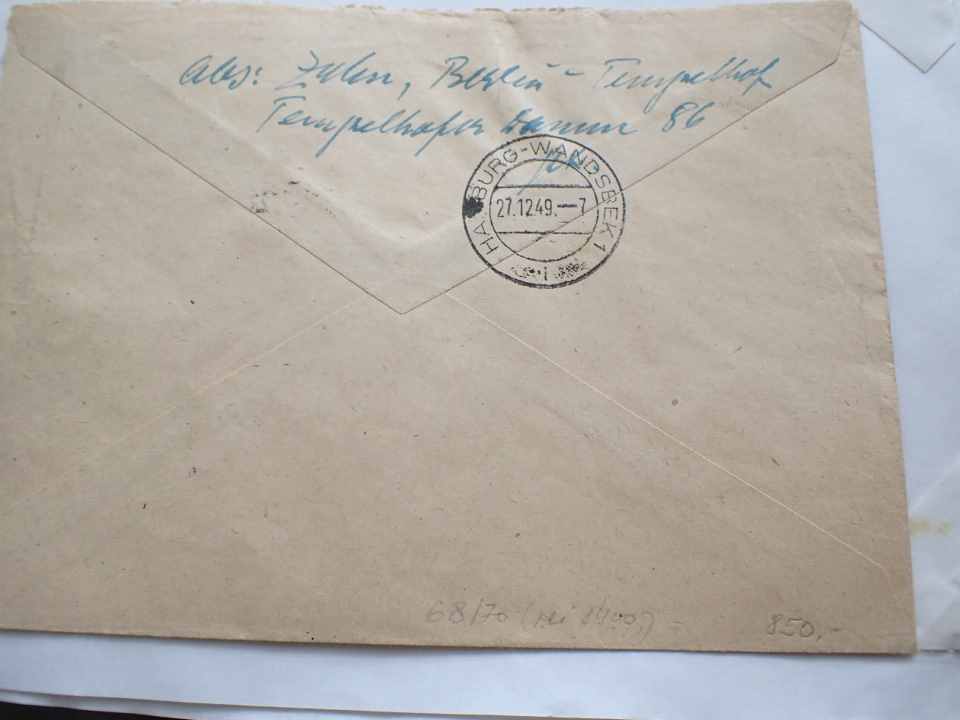 Abs: Zahn, Berlin-Tempelhof
Tempelhofer Damm 86
HAMBURG-WANDSBEK 1
27.12.49.-7
68/70
850,-